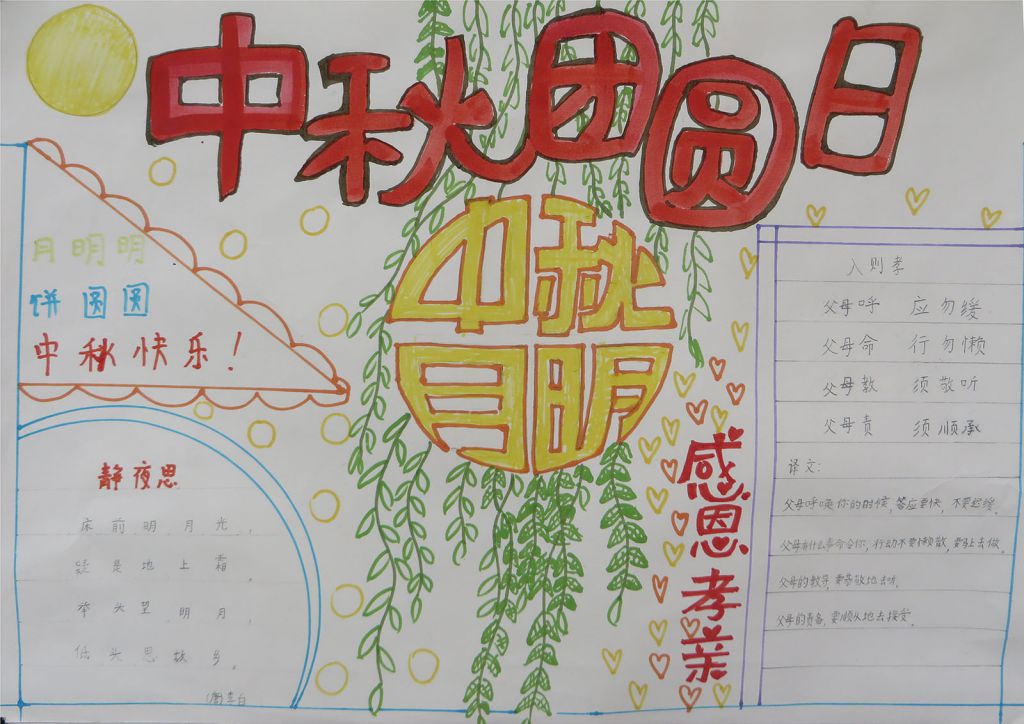 中秋团圆日
中秋
月明
月明明
饼圆圆
中秋快乐！
静夜思
床前明月光，
疑是地上霜。
举头望明月，
低头思故乡。
(唐)李白
感恩孝亲
入则孝
父母呼 应勿缓
父母命 行勿懒
父母教 须敬听
父母责 须顺承
译文：
父母呼唤你的时候，答应要快，不要迟缓。
父母有什么事命令你，行动不要懒散，要马上去做。
父母的教导，要恭敬地去听。
父母的责备，要顺从地去接受。